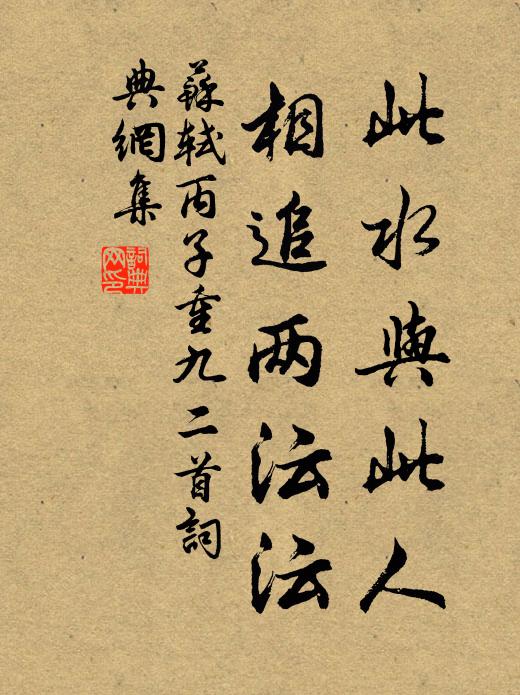 此水與此人
相追两沄沄
蘇軾丙子重九二首詞
典網集
詞典
网印